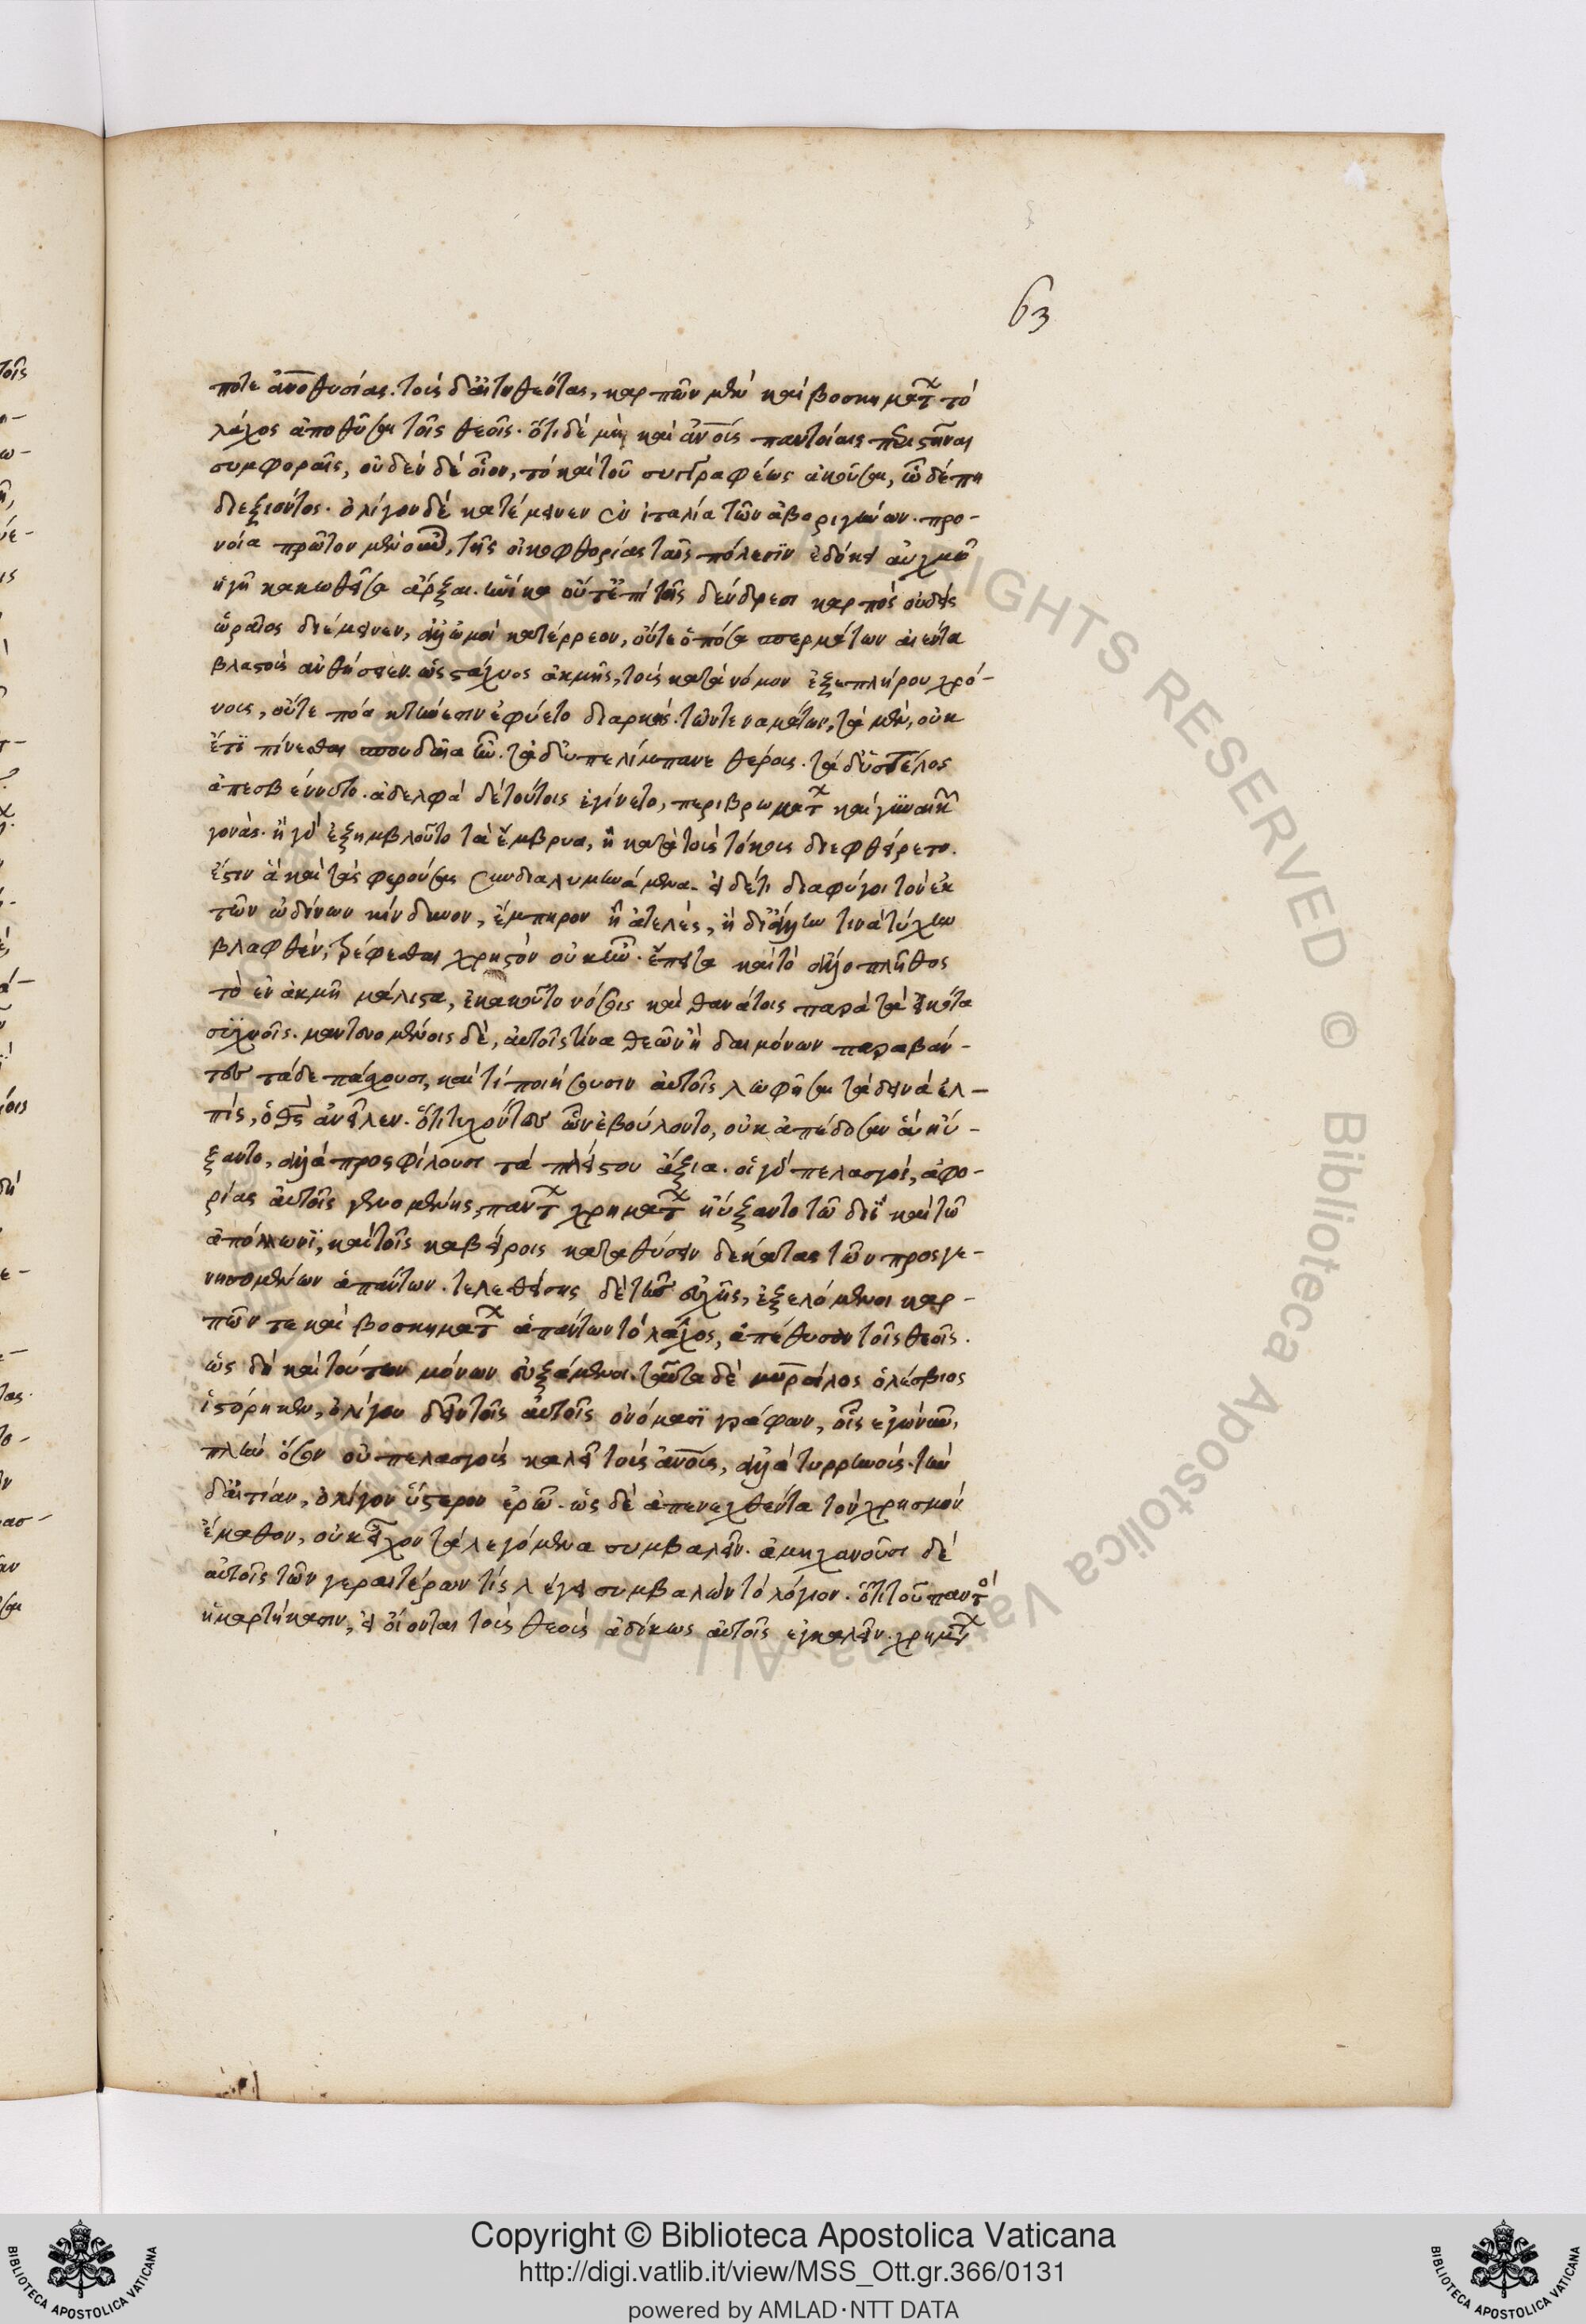 63
ποτε ἀνθρωποθυσίας. τοὺς δ' αἰτηθέντας, καρπῶν μὲν καὶ βοσκημάτων τὸ
λάχος ἀποθῦσαι τοῖς θεοῖς. ὅτι δὲ μὴ καὶ ἀνους παντοίαις
συμφοραῖς, οὐδὲν δὲ οἷον, τὸ καὶ τοῦ συγγραφέως ἀκοῦσαι, ὧδέ πη
διεξιόντος. ὀλίγον δὲ κατέμεινεν ἐν ἰταλία τῶν ἀβοριγήνων. προ-
νοία πρῶτον μὲν οὖν, τῆς οἰκοφθορίας ταῖς πόλεσιν ἐδόκει αὐχμῶ
ἡ γῆ κακωθεῖσα ἄρξαι. ἡνίκα οὔτ' ἐπὶ τοῖς δένδρεσι καρπὸς οὐδεὶς
ὡραῖος διέμεινεν, ἀλλ' ὠμοὶ κατέρρεον, οὔτε ὁπόσα σπερμάτων ἀνέντα
βλαστοὺς ἀνθήσειεν. ὡς στάχυος ἀκμῆς, τοὺς κατὰ νόμον ἐξεπλήρου χρό-
νους, οὔτε πόα κτήνεσιν ἐφύετο διαρκής. τῶν τε ναμάτων, τὰ μὲν, οὐκ
ἔτι πίνεσθαι σπουδαῖα ἦν. τὰ δ' ὑπελίμπανε θέρους. τὰ δ' εἰς τέλος
ἀπεσβέννυτο. ἀδελφὰ δὲ τούτοις ἐγίνετο, περὶ βρωματ καὶ γυναικῶν
γονάς. ἢ γὰρ ἐξημβλοῦτο τὰ ἔμβρυα, ἢ κατὰ τοὺς τόκους διεφθείρετο.
ἔστιν ἃ καὶ τὰς φερούσας συνδιαλυμηνάμενα. εἰ δέ τι διαφύγοι τὸν ἐκ
τῶν ὠδίνων κίνδυνον, ἔμπηρον ἢ ἀτελὲς, ἢ δι' ἄλλην τινὰ τύχην
βλαφθὲν, τρέφεσθαι χρηστὸν οὐκ ἦν. ἔπειτα καὶ τὸ ἄλλο πλῆθος
τὸ ἐν ἀκμῆ μάλιστα, ἐκακοῦτο νόσοις καὶ θανάτοις παρὰ τὰ εἰκότα
συχνοῖς. μαντευομένοις δὲ, αὐτοῖς τίνα θεῶν ἢ δαιμόνων παραβάν-
τες τάδε πάσχουσι, καὶ τί ποιήσασιν αὐτοῖς λωφῆσαι τὰ δεινὰ ἐλ-
πίς, ὁ θς ἀνεῖλεν. ὅτι τυχόντες ὧν ἐβούλοντο, οὐκ ἀπέδοσαν ἃ ηὔ-
ξαντο, ἀλλὰ προσφίλουσι τὰ πλείστου ἄξια. οἱ γὰρ πελασγοὶ, ἀφο-
ρίας αὐτοῖς γενομένης, πάντων χρημάτων ηὔξαντο τῶ διῒ καὶ τῶ
ἀπόλλωνι, καὶ τοῖς καβείροις καταθύσειν δεκάτας τῶν προσγε-
νησομένων ἁπάντων. τελεσθείσης δὲ τῆς εὐχῆς, ἐξελόμενοι καρ-
πῶν τε καὶ βοσκημάτων ἁπάντων τὸ λάχος, ἀπέθυσαν τοῖς θεοῖς.
ὡς δὴ καὶ τούτων μόνων εὐξάμενοι. ταῦτα δὲ μυρσίλος ὁ λέσβιος
ἱστόρηκεν, ὀλίγου δεῖν τοῖς αὐτοῖς ὀνόμασι γράφων, οἷς ἐγὼ νῦν,
πλὴν ὅσον οὐ πελασγοὺς καλεῖ τοὺς ἀνους, ἀλλὰ τυρρηνούς. τὴν
δ' αἰτίαν, ὀλίγον ὕστερον ἐρῶ. ὡς δὲ ἀπενεχθέντα τὸν χρησμὸν
ἔμαθον, οὐκ εἶχον τὰ λεγόμενα συμβαλεῖν. ἀμηχανοῦσι δὲ
αὐτοῖς τῶν γεραιτέρων τίς λέγει συμβαλὼν τὸ λόγιον. ὅτι τοῦ παντὸς
ἡμαρτήκασιν, εἰ οἴονται τοὺς θεοὺς ἀδίκως αὐτοῖς ἐγκαλεῖν. χρημάτων
Copyright © Biblioteca Apostolica Vaticana
http://digi.vatlib.it/view/MSS_Ott.gr.366/0131
powered by AMLAD·NTT DATA